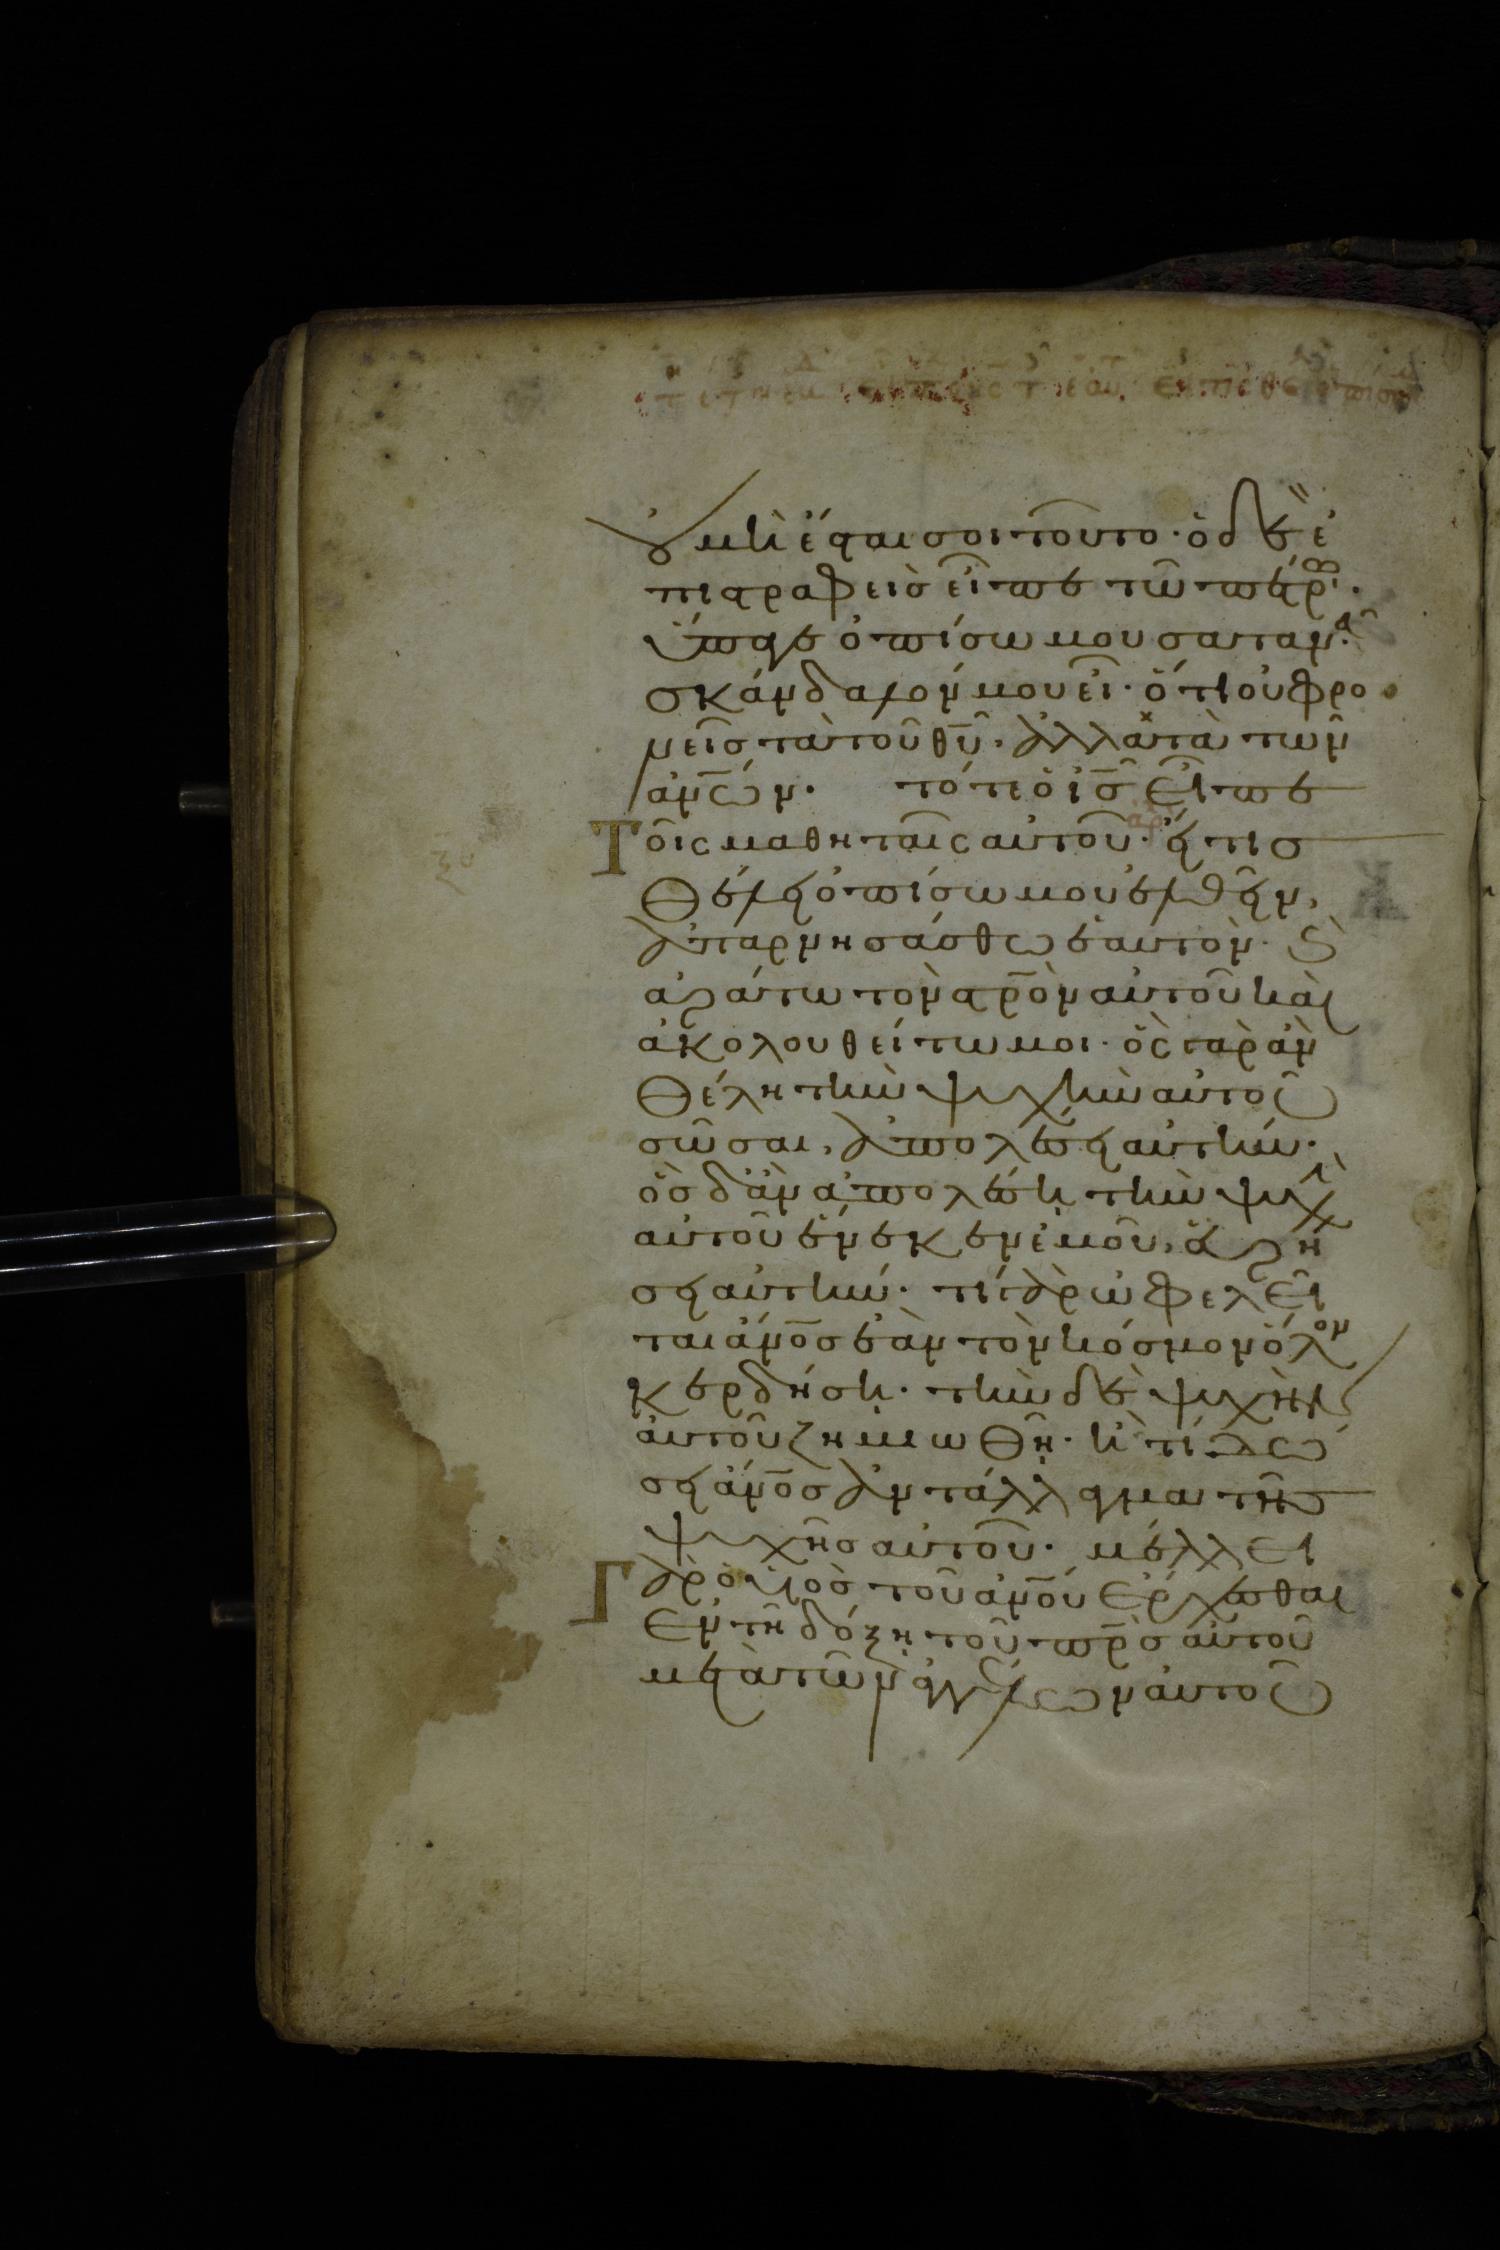 οὐ μὴ ἔσται σοι τοῦτο· ὁ δὲ ἐ
πιστραφεὶς εἶπε τῶ πέτρω·
ὕπαγε ὀπίσω μου σατανᾶ·
σκάνδαλόν μου εἶ· ὅτι οὐ φρο
νεῖς τὰ τοῦ θ̅υ̅· ἀλλὰ τὰ τῶν
ἀν̅ων· τότε ὁ ι̅ς̅ εἶπε
Τοῖς μαθηταῖς αὐτοῦ· εἴ τις
θέλει ὀπίσω μου ἐλθεῖν,
ἀπαρνησάσθω ἑαυτὸν· ϗ
ἀράτω τὸν στ̅ρὸν αὐτοῦ καὶ
ἀκολουθείτω μοι· ὃς γὰρ ἂν
θέλη τὴν ψυχὴν αὐτοῦ
σῶσαι, ἀπολέσει αὐτήν·
ὃς δ ἂν ἀπολέση τὴν ψυχὴ
αὐτοῦ ἕνεκεν ἐμοῦ, εὑρή
σει αὐτήν· τί γὰρ ὠφελεῖ
ται ἄν̅ος ἐὰν τὸν κόσμον ὅλον
κερδήση· τὴν δὲ ψυχὴν
αὐτοῦ ζημιωθῆ· ἢ τί δώ
σει ἄν̅ος ἀντάλλαγμα τῆς
ψυχῆς αὐτοῦ· μέλλει
Γὰρ ὁ υἱὸς τοῦ ἀν̅ου ἔρχεσθαι
ἐν τῆ δόξη τοῦ π̅ρ̅ς αὐτοῦ
μετὰ τῶν ἀγγέλων αὐτοῦ